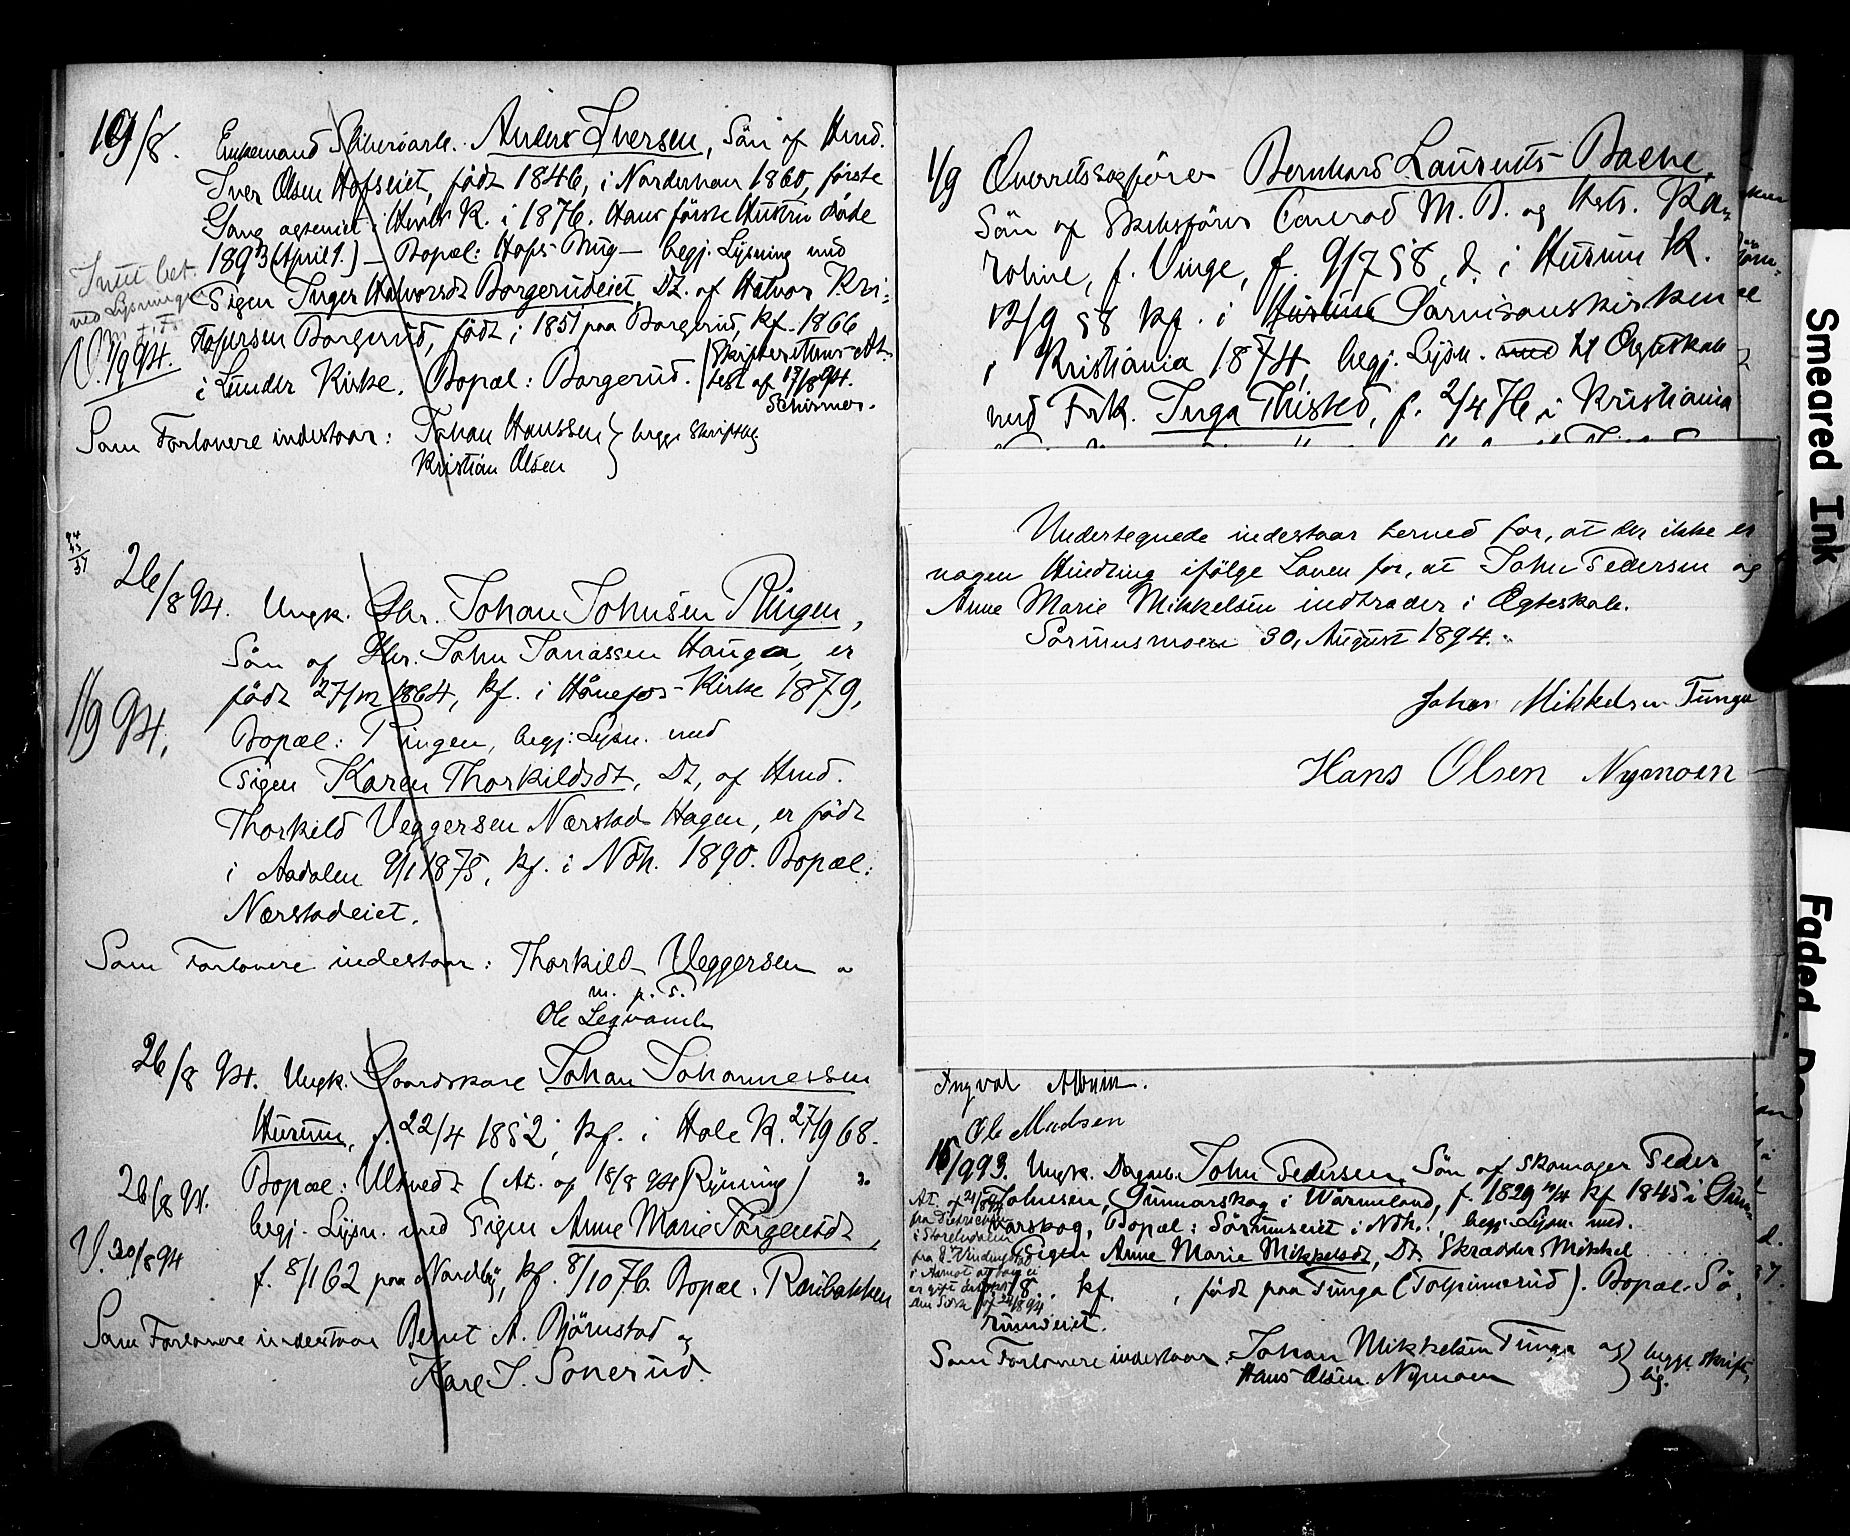 19/8. Enkemand Anders Iversen, Sön af Hmd.
Iver Olsen Hofseiet, födt 1846, i Norderhov 1860, förste
Gang i Hovls K. i 1876. Hans förste Hustru döde
1893 (April 1.) – Bopæl: Hofs- – begj. Lysning med
Pigen Inger Halvorsdt Borgerudeiet, Dt. af Halvor Kri-
stofersen Borgerud, födt i 1851 paa Borgerud, kf. 1866
i Lunder Kirke. Bopæl: Borgerud.
Skiftes At-
test af 17/8 94.
Schirmer.
Intet bet.
med Lysninger
V. 7/9 94.
Som Forlovere indestaar: Johan Hanssen
Kristian Olsen
begge Skriftlig
94
43
51
26/8 94. Ungk. Gbr. Johan Johnsen Ringen,
Sön af Gbr. John Jonassen Hauga, er
födt 27/12 1864, kf. i Hönefos-Kirke 1879,
1/9 94.
Bopæl: Ringen, begj. Lysn. med
Pigen Karen Thorkildsdt, Dt, af Hmd.
Thorkild Veggersen Nærstad Hagen, er födt
i Aadalen 9/1 1875, kf. i Ndh. 1890. Bopæl:
Nærstadeiet.
Som Forlovere indestaar: Thorkild Veggersen
m. p. P.
Ole Legvamb
26/8 94. Ungk. Gaardskarl Johan Johannessen
Hurum, f. 22/4 1852, kf. i Hole K. 27/9 68.
26/8 94. Bopæl: Ultvedt (At. af 18/8 94 Rynning)
begj. Lysn. med Pigen Anne Marie Jörgensdt,
V. 30/8 94
f. 8/1 62 paa Nordby, kf. 8/10 76. Bopæl: Rönibakken
Som Forlovere indestaar Bernt A. Björnstad og
Karl J. Sonerud.
1/9 Overretssagförer Bernhard Laurents Bache,
Sön af Skibsförer Conrad M. B. og Hstr. Ka-
roline, f. Vinge, f. 9/7 58, d. i Hurum K.
12/9 58 kf. i Hurums Garnisonskirken
i Kristiania 1874, begj. Lysn. med til Ægteskab
med Frk. Inga Thisted, f. 2/4 76 i Kristiania
Undertegnede indestaar herved for, at der ikke er
nogen Hindring ifölge Loven for, at John Pedersen og
Anne Marie Mikkelsen indtræder i Ægteskab.
Sörmunsmoen 30, August 1894.
Johan Mikkelsen Tunga
Hans Olsen Nymoen
Ingval Albium.
Ole Madsen
16/9 93. Ungk. John Pedersen, Sön af Skomager Peder
Johnsen, Gunnarskog i Wärmland, f. 1829 kf 1845 i Gun-
narskog, Bopæl: Sörmunseiet i Ndh., begj. Lysn. med
Pigen Anne Marie Mikkelsdt, Dt. Skrædder Mikkel
18.. kf. , födt paa Tunga (Tolpinnrud). Bopæl: Sö-
rumseiet.
Som Forlovere indestaar Johan Mikkelsen Tunga og
Hans Olsen Nymoen
begge skrift-
lig.
Smeared Ink
Faded